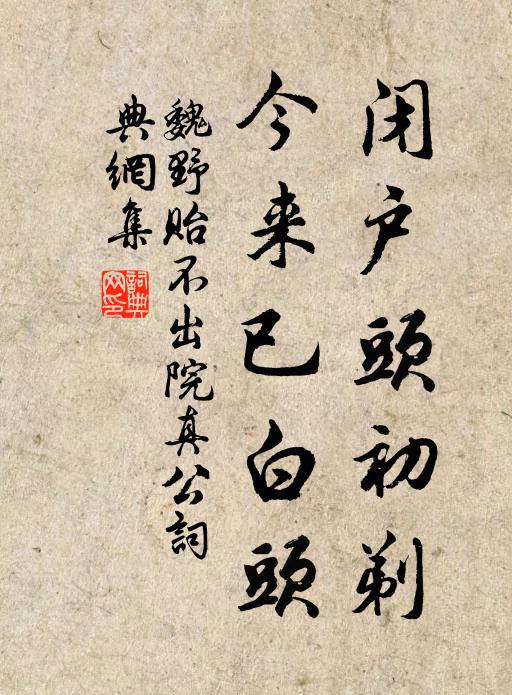 闭户頭初剃
今来已白頭
魏野贻不出院真公詞
典網集
詞典網印